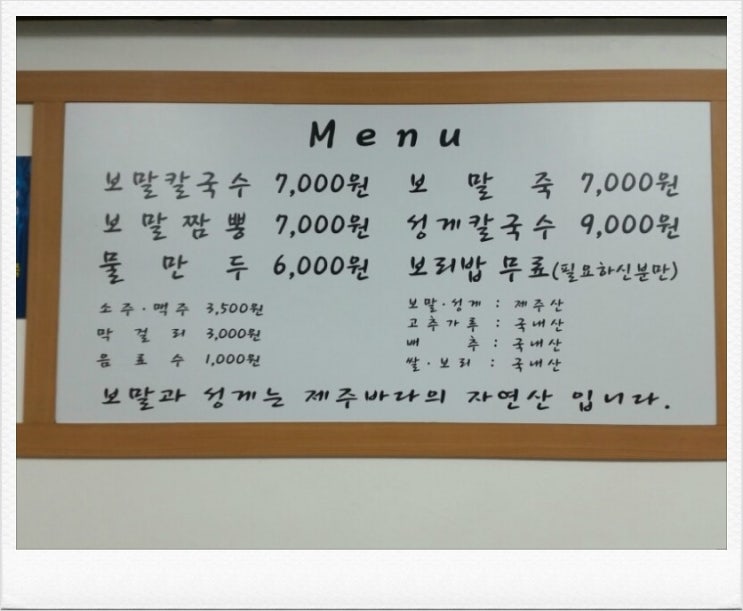 Menu
보말칼국수 7,000원
보말죽 7,000원
보말짬뽕 7,000원
성게칼국수 9,000원
물만두 6,000원
보리밥 무료(필요하신분만)
소주·맥주 3,500원
막걸리 3,000원
음료수 1,000원
보말·성게 : 제주산
고추가루 : 국내산
배추 : 국내산
쌀·보리 : 국내산
보말과 성게는 제주바다의 자연산 입니다.